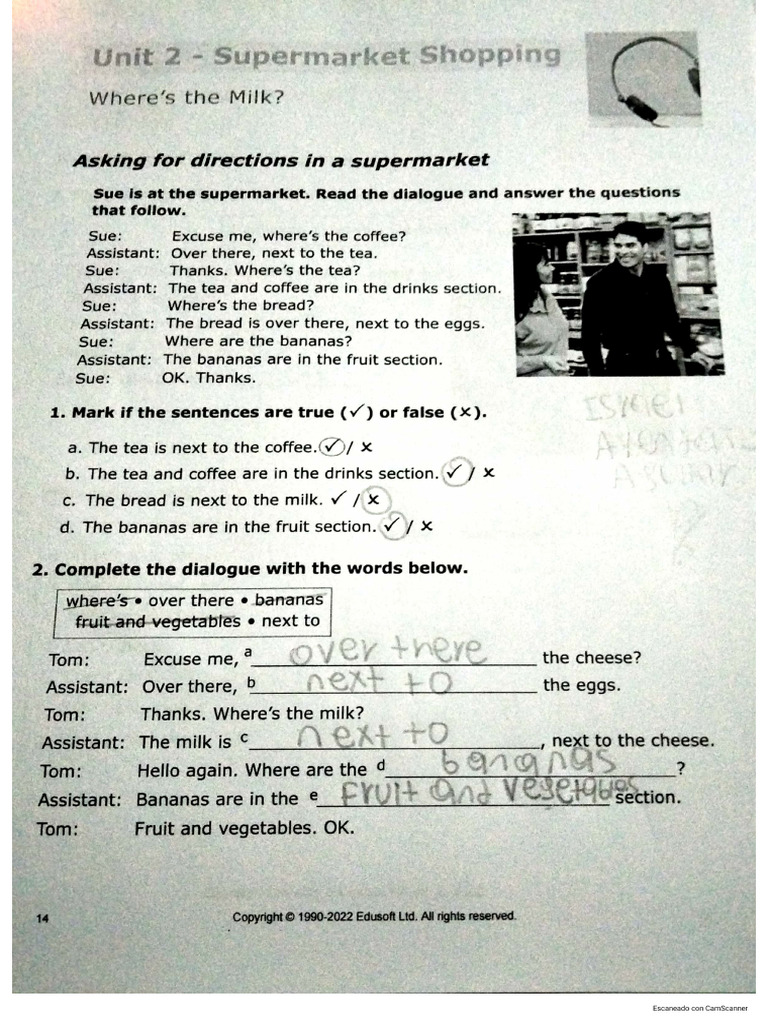 Unit 2 - Supermarket Shopping
Where's the Milk?
Asking for directions in a supermarket
Sue is at the supermarket. Read the dialogue and answer the questions
that follow.
Sue: Excuse me, where's the coffee?
Assistant: Over there, next to the tea.
Sue: Thanks. Where's the tea?
Assistant: The tea and coffee are in the drinks section.
Sue: Where's the bread?
Assistant: The bread is over there, next to the eggs.
Sue: Where are the bananas?
Assistant: The bananas are in the fruit section.
Sue: OK. Thanks.
1. Mark if the sentences are true (✓) or false (×).
Ismel
a. The tea is next to the coffee. ✓ / ×
b. The tea and coffee are in the drinks section. ✓ / ×
c. The bread is next to the milk. ✓ / ×
d. The bananas are in the fruit section. ✓ / ×
2. Complete the dialogue with the words below.
where's • over there • bananas
fruit and vegetables • next to
Tom: Excuse me, a over there the cheese?
Assistant: Over there, b next to the eggs.
Tom: Thanks. Where's the milk?
Assistant: The milk is c next to, next to the cheese.
Tom: Hello again. Where are the d bananas?
Assistant: Bananas are in the e fruit and vegetables section.
Tom: Fruit and vegetables. OK.
14 Copyright © 1990-2022 Edusoft Ltd. All rights reserved.
Escaneado con CamScanner